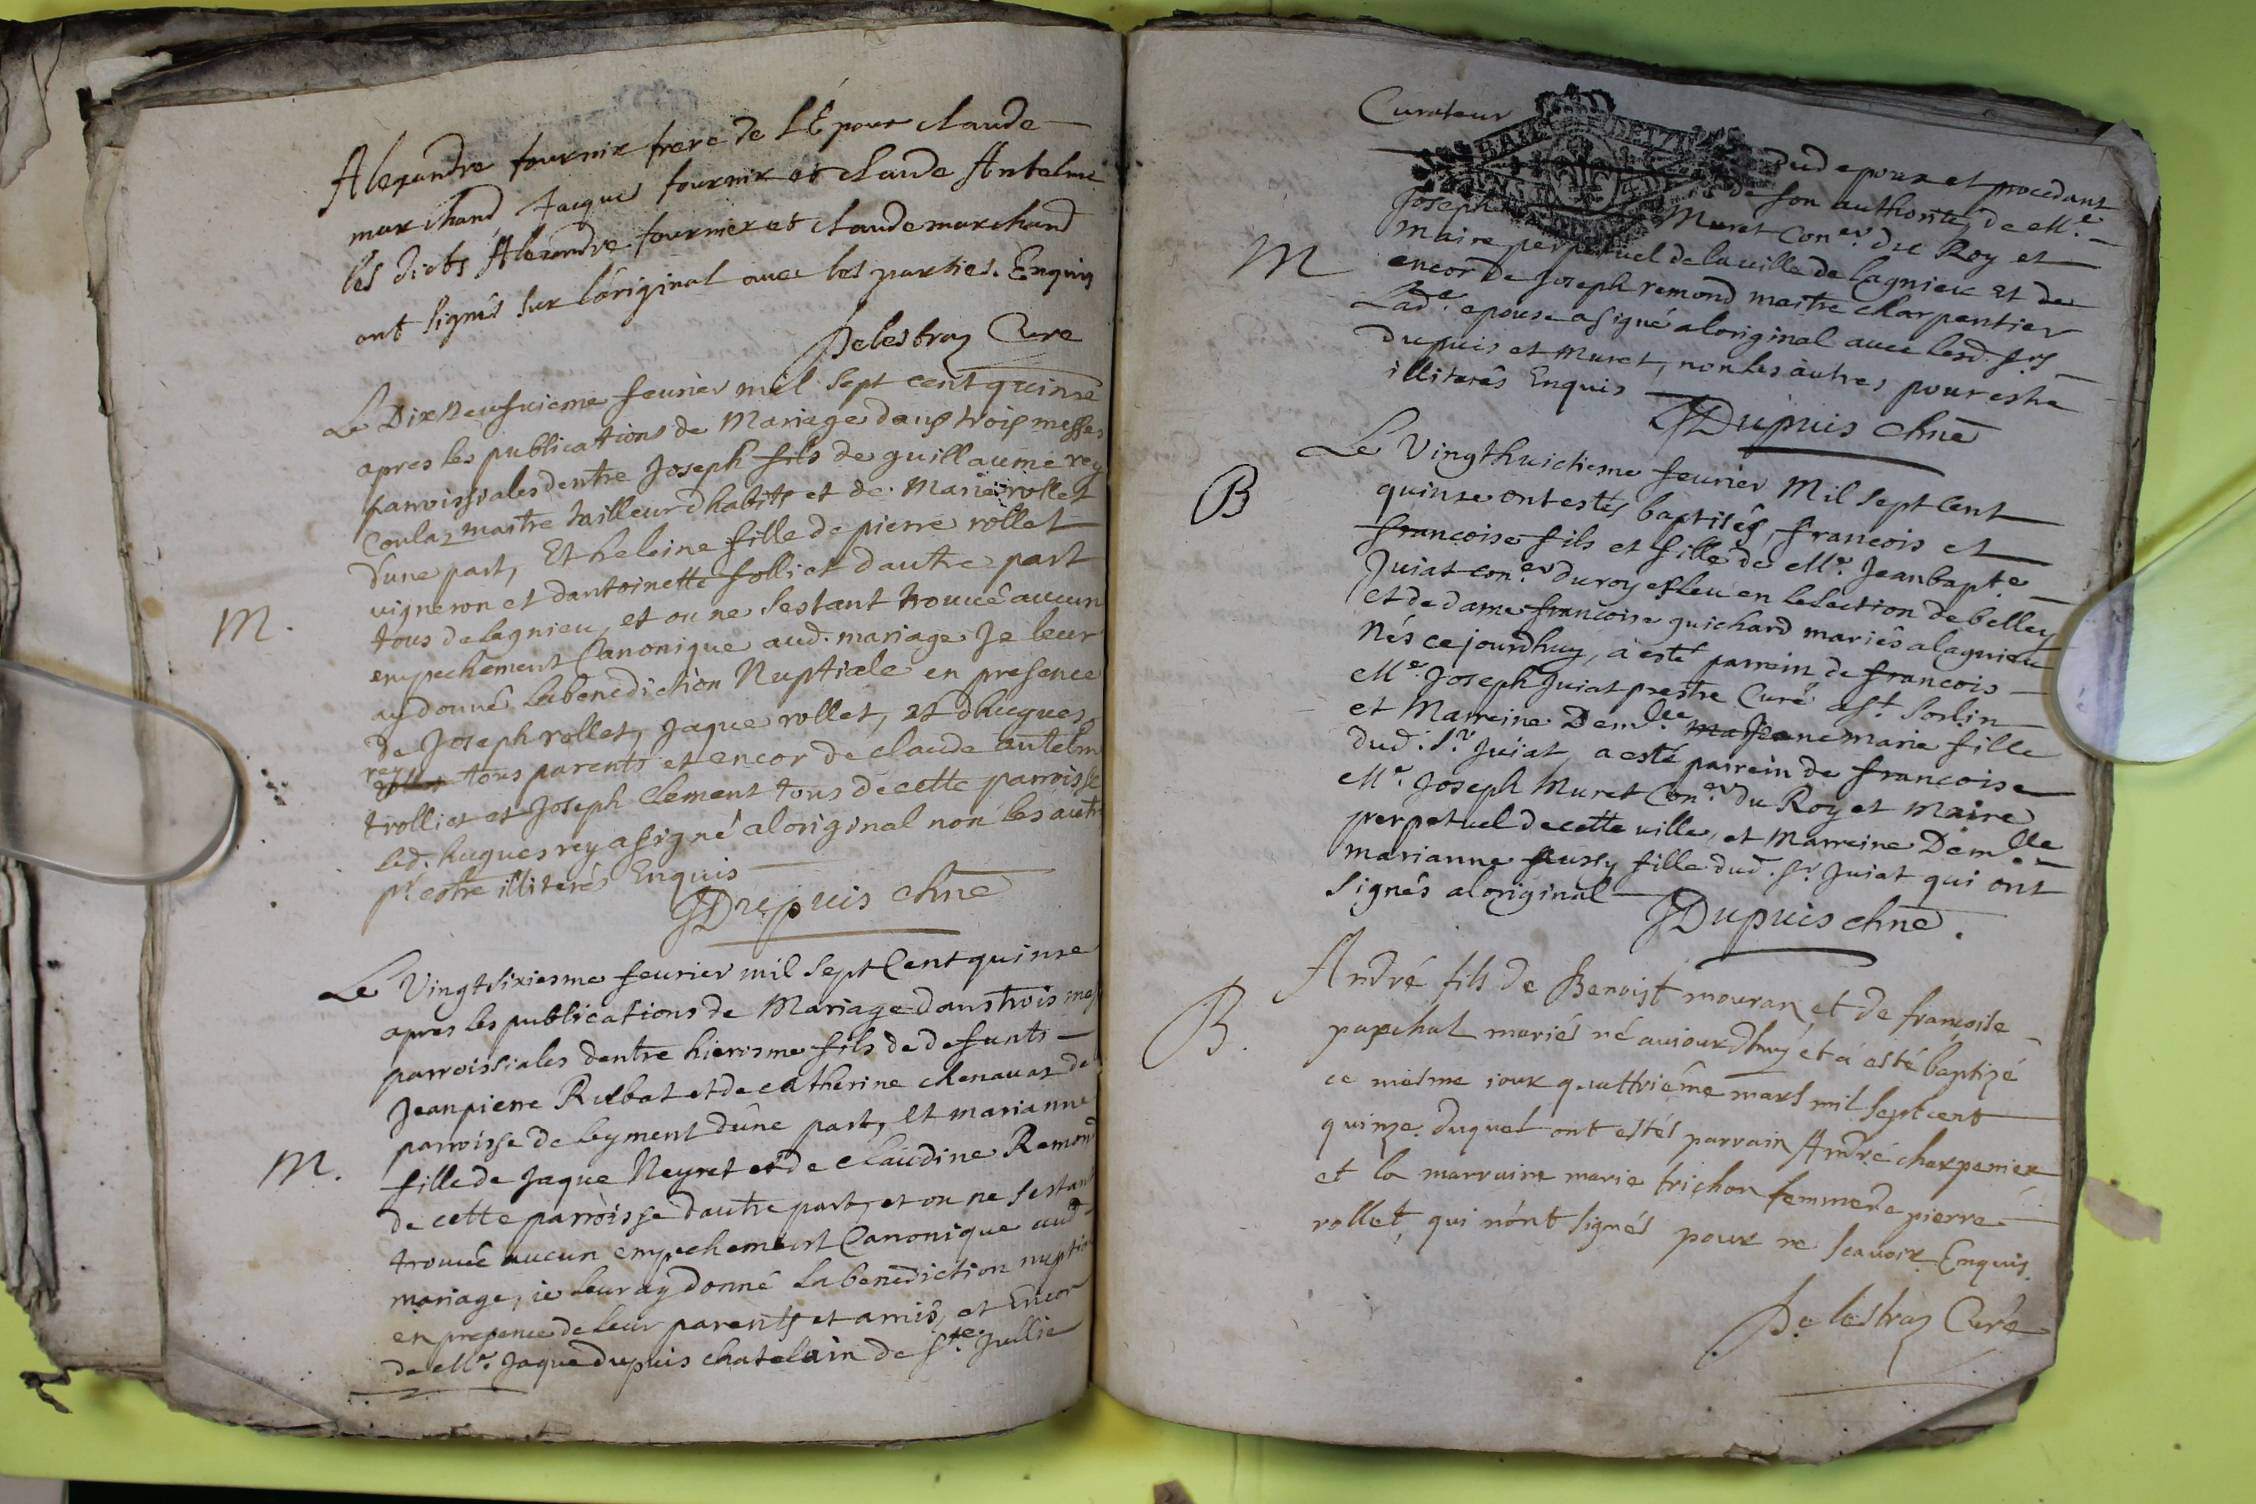 Alexandre fournir frere de L'Epoux claude
marchand Jacque fournir et claude Antelme
les dicts Alexandre fournier et claude marchand
ont signés sur l'original avec les parties. Enquis
Delestraz Cure
Le Dix neufuieme feurier mil sept cent quinse
apres les publications de Mariage dans trois messes
parroissiales dentre Joseph fils de guillaume rey
Coulaz maitre tailleur d'habits et de Marie rollet
d'une part, Et heleine fille de pierre rollet
vigneron et dantoinette folliet dautre part
M.
tous de lagnieu, et ou ne sestant trouué aucun
empechement Canonique aud. mariage Je leur
ay donné la benediction Nuptiale en presence
de Joseph rollet, Jaque rollet, et dhugues
rey tous parents et encor de claude antelm
trolliet et Joseph Clement tous de cette parroisse
led. hugues rey a signé a loriginal non les autr
pr. estre illiterés Enquis
JDupuis chne
Le Vingt sixiesme feurier mil sept Cent quinse
apres les publications de Mariage dans trois mes
parroissiales dentre hierosme fils de defunts
Jeanpierre Rubat et de catherine chenauaz de
parroisse de leyment d'une part, et marianne
M.
fille de Jaque Neyret et de claudine Remond
de cette parroisse dautre part, et ou ne sestant
trouué aucun empechement Canonique aud
mariage, ie leur ay donné la benediction nuptia
en presence de leur parents et amis, et Encor
de Mr. Jaque dupuis chatelain de Ste. Jullie
Curateur
dud epoux et procedant
de son authorité, de Me.
Joseph Muret Coner. du Roy et
M
maire perpetuel de la ville de lagnieu et de
encor de Joseph remond maitre charpentier
Lade. epouse a signé a loriginal auec lesd. srs
dupuis et Muret, non les autres pour estre
illiterés Enquis
JDupuis chne
Le Vingthuictiesme feurier Mil sept Cent
B
quinse ont estés baptisés, francois et
francoise fils et fille de Mr. Jeanbapte.
Juiat coner. du roy esleu en lelection de belley
et de dame francoise guichard mariés a lagnieu
nés ce jourdhuy, a esté parrein de francois
Mre. Joseph Juiat prestre Curé a St. Sorlin
et Marreine Demlle. Jeanne marie fille
dud. Sr. Juiat, a esté parrein de francoise
Mr. Joseph Muret Coner. du Roy et Maire
perpetuel de cette ville, et Marreine Demlle.
marianne fille dud. Sr. Juiat qui ont
signés a loriginal
JDupuis chne.
André fils de Benoist mouran et de françoise
B.
paschal mariés né auiourdhuy et a esté baptizé
ce mesme iour quattriême mars mil sept cent
quinze. duquel ont estés parrain André charpenier
et la marraine marie trichon femme de pierre
rollet, qui n'ont signés pour ne scauoir. Enquis.
Delestraz Curé